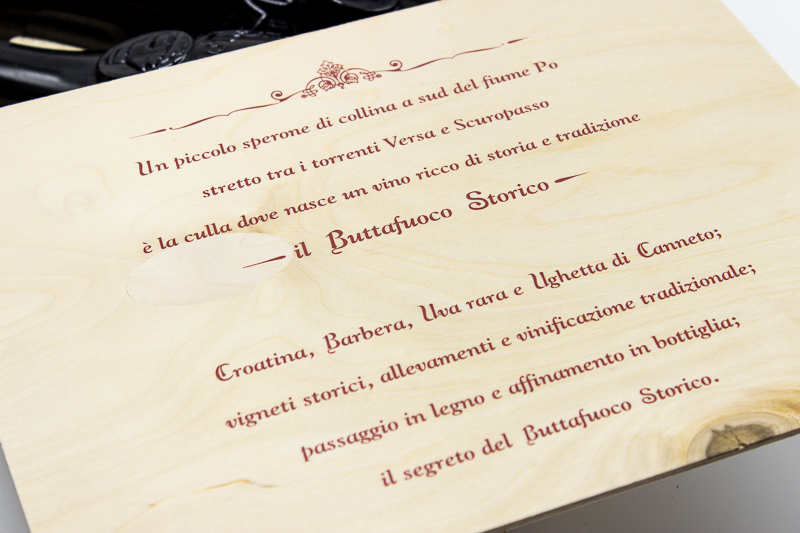 Un piccolo sperone di collina a sud del fiume Po
stretto tra i torrenti Versa e Scuropasso
è la culla dove nasce un vino ricco di storia e tradizione
il Buttafuoco Storico
Croatina, Barbera, Uva rara e Ughetta di Canneto;
vigneti storici, allevamenti e vinificazione tradizionale;
passaggio in legno e affinamento in bottiglia;
il segreto del Buttafuoco Storico.